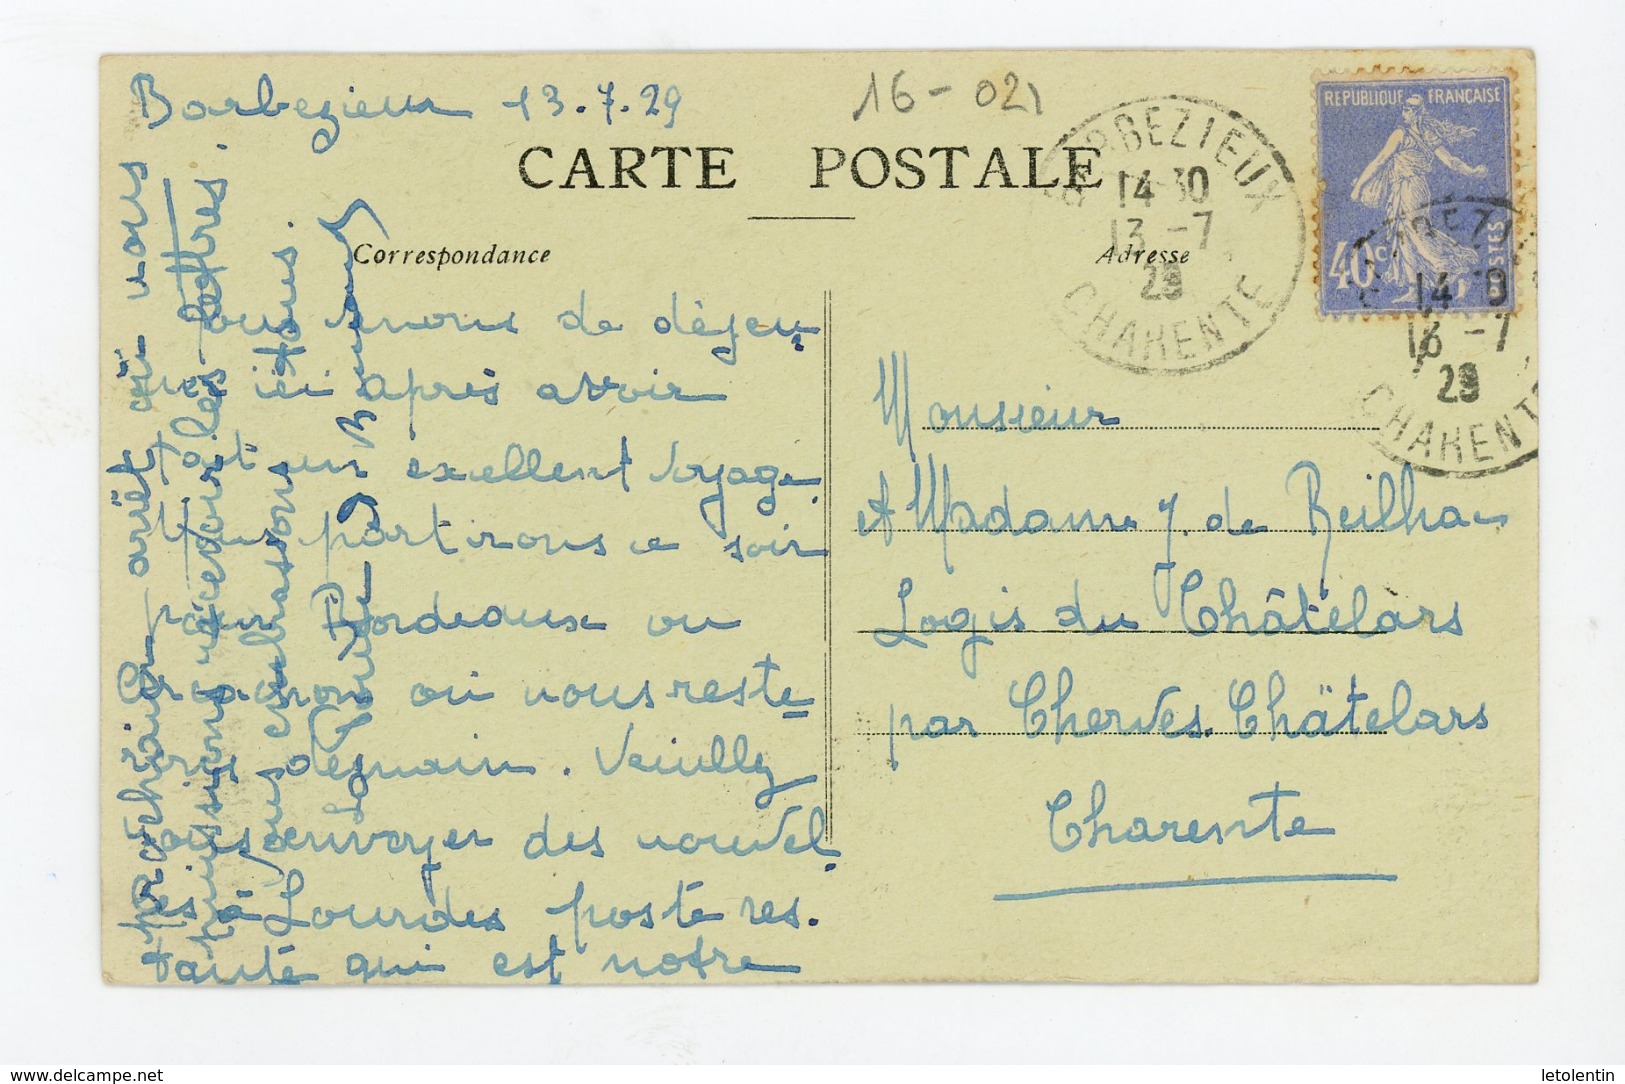 Barbezieux 13.7.29
16-02
CARTE POSTALE
Correspondance
Adresse
REPUBLIQUE FRANÇAISE
40c
POSTES
BARBEZIEUX
14-30
13-7
29
CHARENTE
14
13-7
29
CHARENTE
venons de déjeu
ner ici après avoir
fait un excellent voyage
partirons ce soir
pour Bordeaux ou
où nous reste
rons demain. Veuillez
nous envoyer des nouvel
les à Lourdes poste res.
tante qui est notre
prochain arrêt où nous
puissions avoir les lettres.
nous embrassons tous.
Monsieur
et Madame J. de Reilhac
Logis du Châtelars
par Cherves-Châtelars
Charente
www.delcampe.net
letolentin